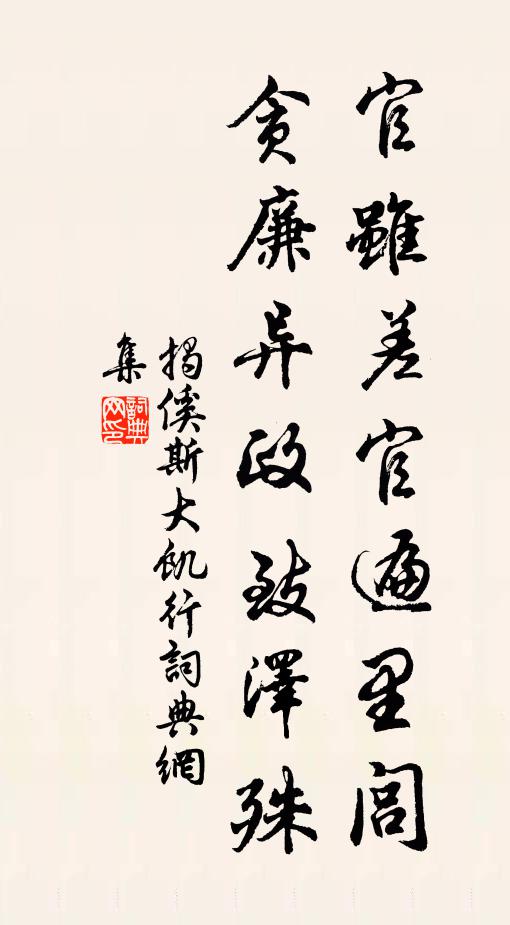 官雖差官遍里閭
貪廉异政致澤殊
揭傒斯大飢行詞典網
集
詞典網印